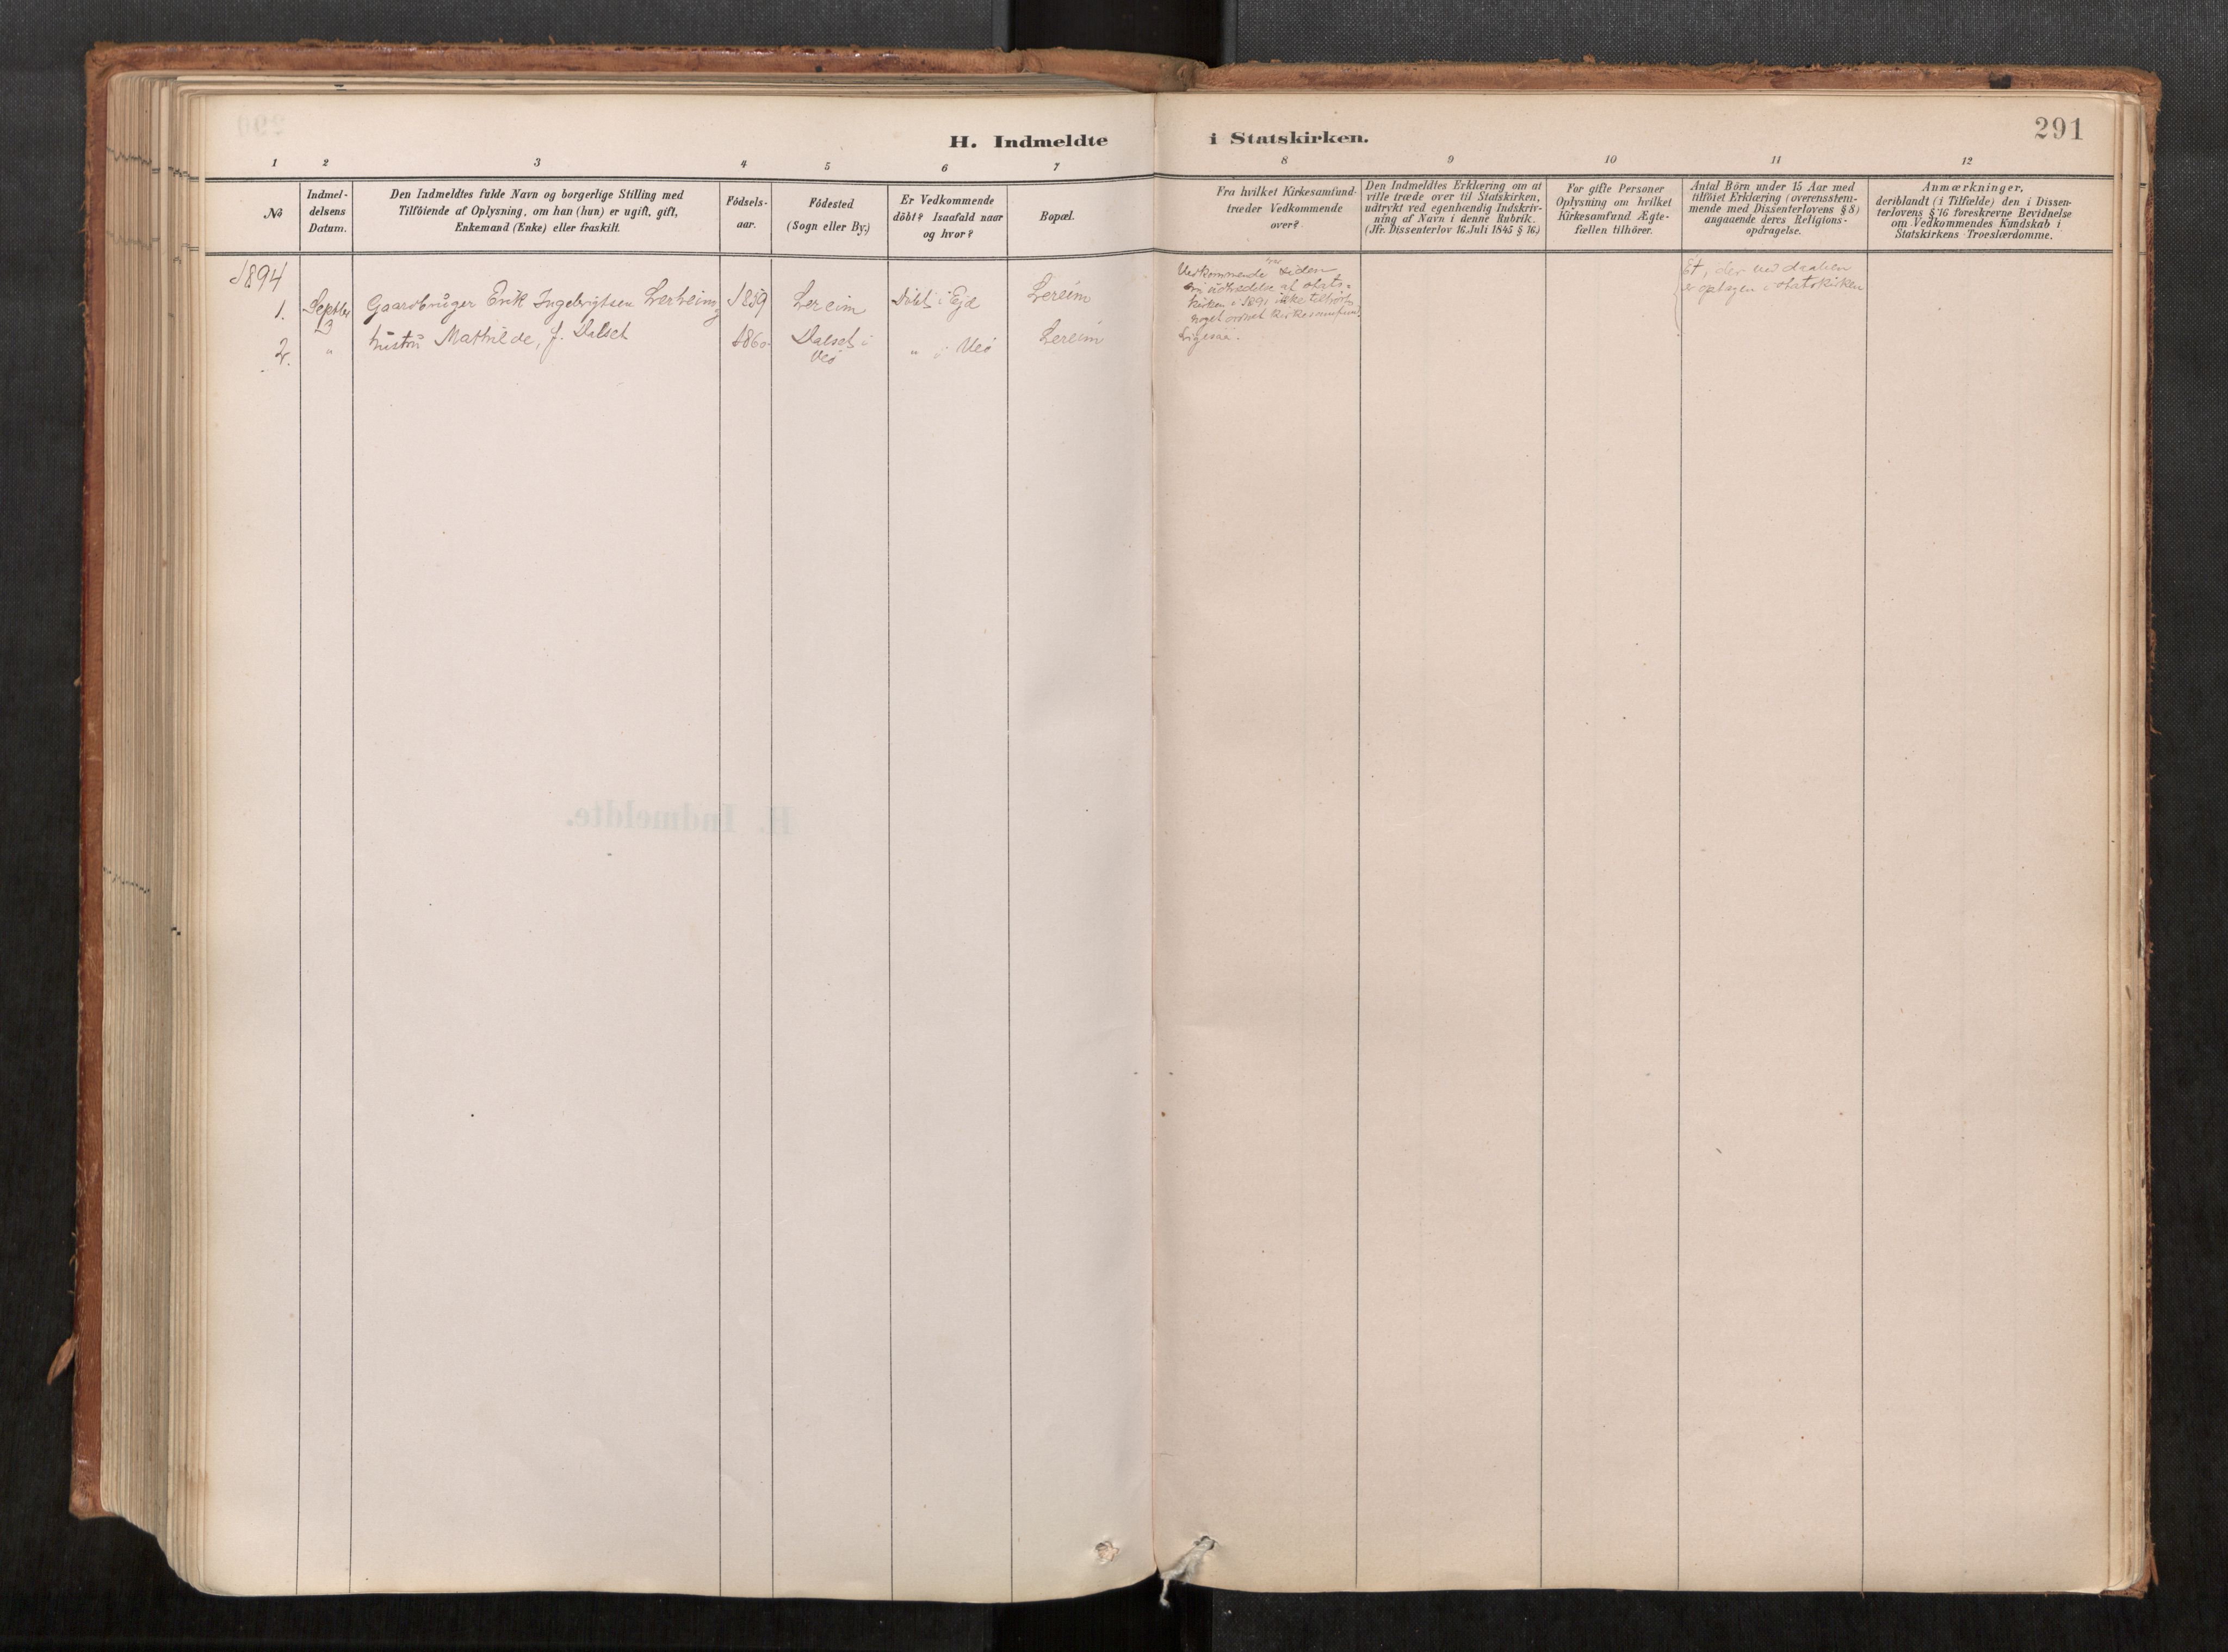 291
H. Indmeldte i Statskirken.
1 2 3 4 5 6 7 8 9 10 11 12
No
Indmel-
delsens
Datum.
Den Indmeldtes fulde Navn og borgerlige Stilling med
Tilföiende af Oplysning, om han (hun) er ugift, gift,
Enkemand (Enke) eller fraskilt.
Födsels-
aar.
Födested
(Sogn eller By.)
Er Vedkommende
döbt? Isaafald naar
og hvor?
Bopæl.
Fra hvilket Kirkesamfund
træder Vedkommende
over?
Den Indmeldtes Erklæring om at
ville træde over til Statskirken,
udtrykt ved egenhændig Indskriv-
ning af Navn i denne Rubrik.
(Jfr. Dissenterlov 16. Juli 1845 § 16.)
For gifte Personer
Oplysning om hvilket
Kirkesamfund Ægte-
fællen tilhörer.
Antal Börn under 15 Aar med
tilföiet Erklæring (overensstem-
mende med Dissenterlovens § 8)
angaaende deres Religions-
opdragelse.
Anmærkninger,
deriblandt (i Tilfælde) den i Dissen-
terlovens § 16 foreskrevne Bevidnelse
om Vedkommendes Kundskab i
Statskirkens Troeslærdomme.
1894
1.
Septbr
13
Gaardbruger Erik Ingebrigtsen Lerheim
1859
Lereim
Döbt i Ejd
Lereim
Vedkommende har siden
sin udtrædelse af stats-
kirken i 1891 ikke tilhört
noget ordnet kirkesamfund.
Et, der ved daaben
er optagen i statskirken
2.
"
hustru Mathilde, f. Dalset
1860
Dalset i
Veö
" i Veö
Lereim
Ligesaa.
H. Indmeldte.
290